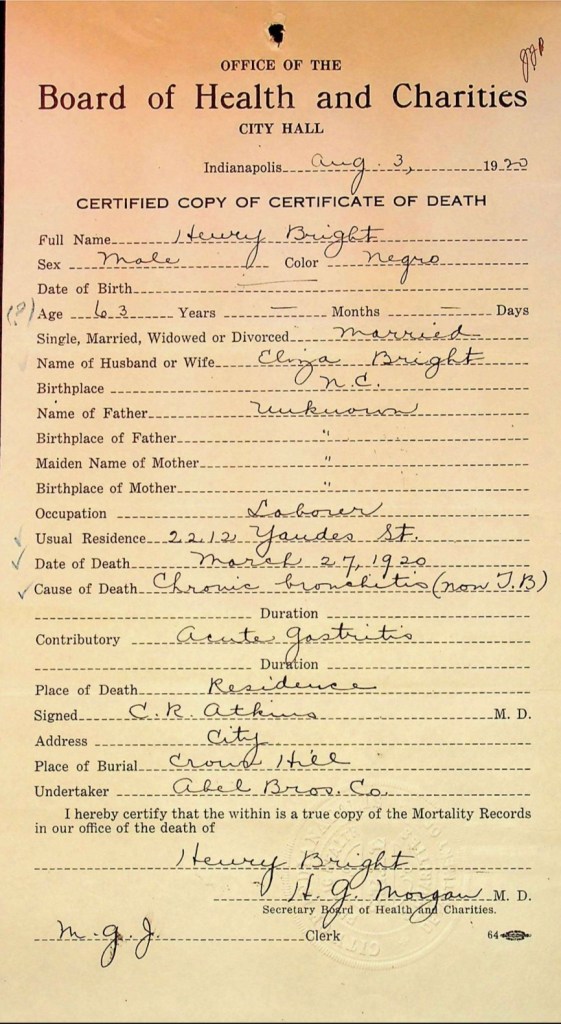 JJP
OFFICE OF THE
Board of Health and Charities
CITY HALL
Indianapolis Aug. 3, 1920
CERTIFIED COPY OF CERTIFICATE OF DEATH
Full Name Henry Bright
Sex Male Color Negro
Date of Birth —
(?) Age 63 Years — Months — Days
Single, Married, Widowed or Divorced Married
Name of Husband or Wife Eliza Bright
Birthplace N.C.
Name of Father Unknown
Birthplace of Father "
Maiden Name of Mother "
Birthplace of Mother "
Occupation Laborer
Usual Residence 2212 Yandes St.
Date of Death March 27, 1920
Cause of Death Chronic bronchitis (non T.B)
Duration
Contributory Acute gastritis
Duration
Place of Death Residence
Signed C. R. Atkins M. D.
Address City
Place of Burial Crown Hill
Undertaker Abel Bros. Co.
I hereby certify that the within is a true copy of the Mortality Records
in our office of the death of
Henry Bright
H. G. Morgan M. D.
Secretary Board of Health and Charities.
M. G. J. Clerk 64